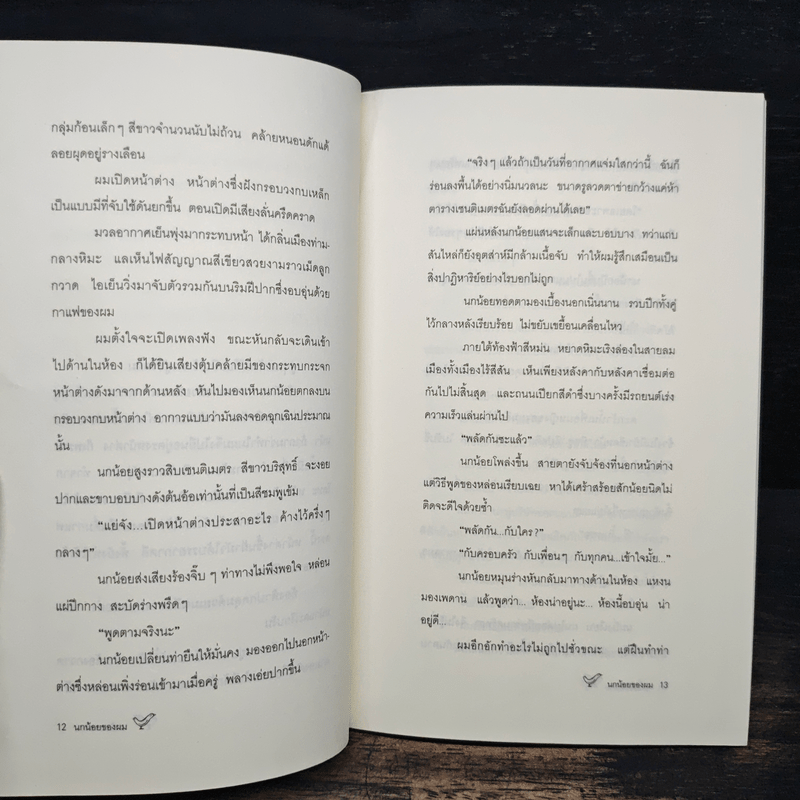 กลุ่มก้อนเล็กๆ สีขาวจำนวนนับไม่ถ้วน คล้ายหนอนดักแด้
ลอยผุดอยู่รางเลือน
ผมเปิดหน้าต่าง หน้าต่างซึ่งฝังกรอบวงกบเหล็ก
เป็นแบบมีที่จับใช้ดันยกขึ้น ตอนเปิดมีเสียงลั่นครืดคราด
มวลอากาศเย็นพุ่งมากระทบหน้า ได้กลิ่นเมืองท่าม-
กลางหิมะ แลเห็นไฟสัญญาณสีเขียวสวยงามราวเม็ดลูก
กวาด ไอเย็นวิ่งมาจับตัวรวมกันบนริมฝีปากซึ่งอบอุ่นด้วย
กาแฟของผม
ผมตั้งใจจะเปิดเพลงฟัง ขณะหันกลับจะเดินเข้า
ไปด้านในห้อง ก็ได้ยินเสียงตุ้บคล้ายมีของกระทบกระจก
หน้าต่างดังมาจากด้านหลัง หันไปมองเห็นนกน้อยตกลงบน
กรอบวงกบหน้าต่าง อาการแบบว่ามันลงจอดฉุกเฉินประมาณ
นั้น
นกน้อยสูงราวสิบเซนติเมตร สีขาวบริสุทธิ์ จะงอย
ปากและขาบอบบางดังต้นอ้อเท่านั้นที่เป็นสีชมพูเข้ม
“แย่จัง...เปิดหน้าต่างประสาอะไร ค้างไว้ครึ่งๆ
กลางๆ”
นกน้อยส่งเสียงร้องจิ๊บๆ ท่าทางไม่พึงพอใจ หล่อน
แผ่ปีกกาง สะบัดร่างพรืดๆ
“พูดตามจริงนะ”
นกน้อยเปลี่ยนท่ายืนให้มั่นคง มองออกไปนอกหน้า-
ต่างซึ่งหล่อนเพิ่งร่อนเข้ามาเมื่อครู่ พลางเอ่ยปากขึ้น
12 นกน้อยของผม
“จริงๆ แล้วถ้าเป็นวันที่อากาศแจ่มใสกว่านี้ ฉันก็
ร่อนลงพื้นได้อย่างนิ่มนวลนะ ขนาดรูลวดตาข่ายกว้างแค่ห้า
ตารางเซนติเมตรฉันยังลอดผ่านได้เลย”
แผ่นหลังนกน้อยแสนจะเล็กและบอบบาง ทว่าแถบ
สันไหล่ก็ยังอุตส่าห์มีกล้ามเนื้อจับ ทำให้ผมรู้สึกเสมือนเป็น
สิ่งปาฏิหาริย์อย่างไรบอกไม่ถูก
นกน้อยทอดตามองเบื้องนอกเนิ่นนาน รวบปีกทั้งคู่
ไว้กลางหลังเรียบร้อย ไม่ขยับเขยื้อนเคลื่อนไหว
ภายใต้ท้องฟ้าสีหม่น หยาดหิมะเริงล่องในสายลม
เมืองทั้งเมืองไร้สีสัน เห็นเพียงหลังคากับหลังคาเชื่อมต่อ
กันไปไม่สิ้นสุด และถนนเปียกสีดำซึ่งบางครั้งมีรถยนต์เร่ง
ความเร็วแล่นผ่านไป
“พลัดกันซะแล้ว”
นกน้อยโพล่งขึ้น สายตายังจับจ้องที่นอกหน้าต่าง
แต่วิธีพูดของหล่อนเรียบเฉย หาได้เศร้าสร้อยสักน้อยนิดไม่
ติดจะดีใจด้วยซ้ำ
“พลัดกัน...กับใคร?”
“กับครอบครัว กับเพื่อนๆ กับทุกคน...เข้าใจมั้ย...”
นกน้อยหมุนร่างหันกลับมาทางด้านในห้อง แหงน
มองเพดาน แล้วพูดว่า... ห้องน่าอยู่นะ... ห้องนี้อบอุ่น น่า
อยู่ดี...
ผมอึกอักทำอะไรไม่ถูกไปชั่วขณะ แต่ฝืนทำท่า
นกน้อยของผม 13